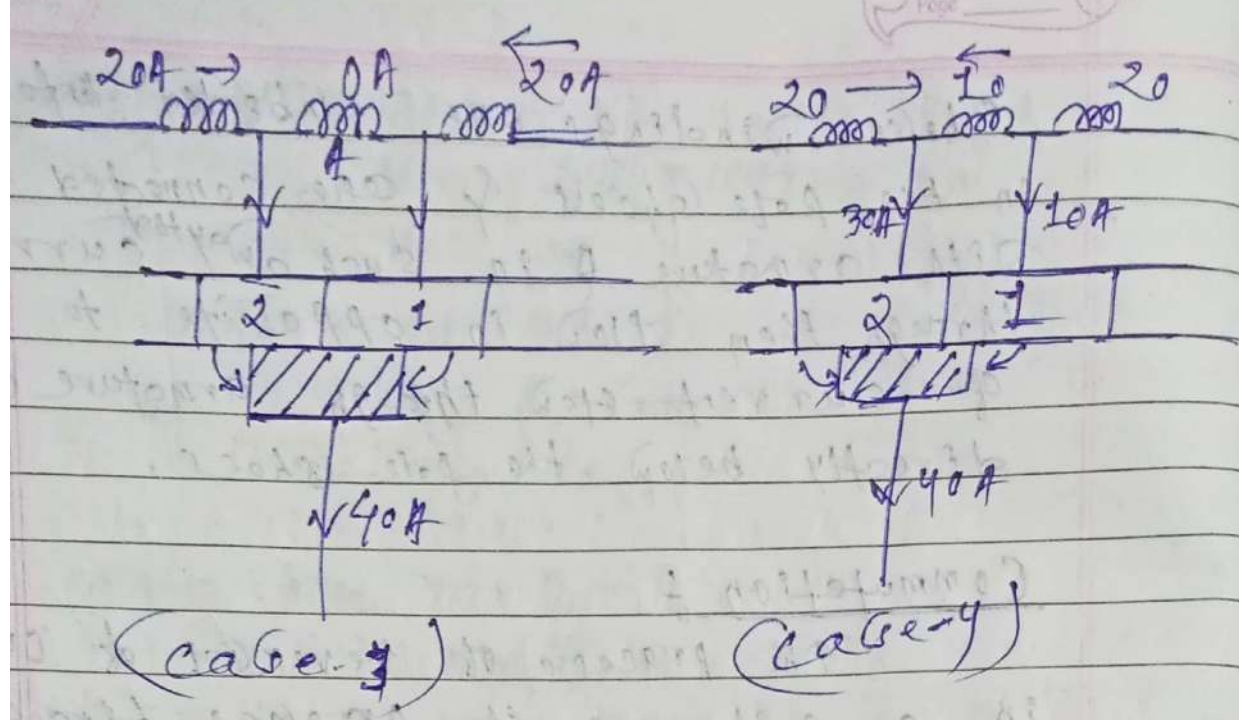 Page
20A → 0A 20A
A
2 1
40A
(Case-3)
20 → 10 20
30A 10A
2 1
40A
(Case-4)